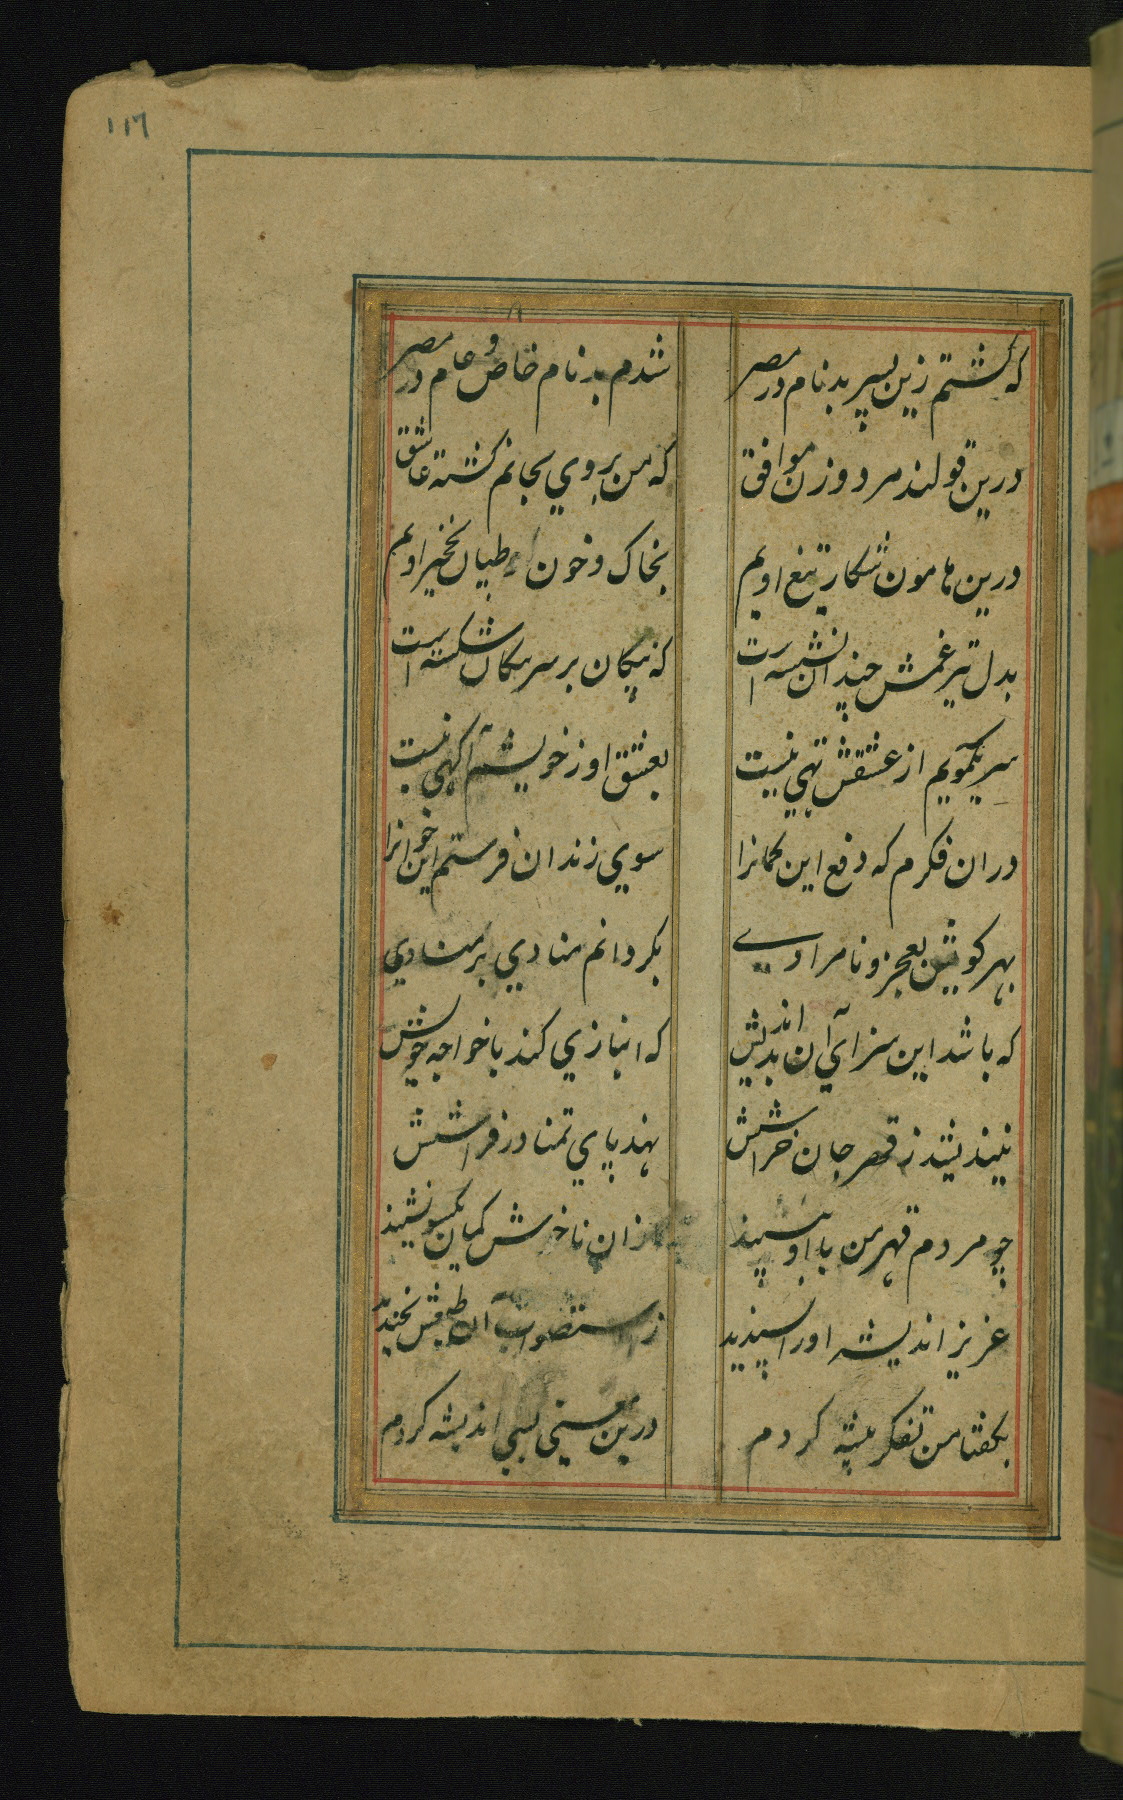 ١١٦
که گشتم زین پسر بدنام در مصر شدم بدنام خاص و عام در مصر
درین قولند مرد و زن موافق که من بر وی بجانم گشته عاشق
درین هامون شکار تیغ اویم بخاک و خون طپان نخچیر اویم
بدل تیر غمش چندان نشسته است که پیکان بر سر پیکان شکسته است
سر یکمویم از عشقش تهی نیست بعشق او ز خویشم آگهی نیست
دران فکرم که دفع این گمانرا سوی زندان فرستم این جوانرا
بهر کویش بعجز و نامرادی بگردانم منادی بر منادی
که باشد این سزای آن بداندیش که انبازی کند با خواجه خویش
نیندیشد ز قهر جان خراشش نهد پای تمنا در فراشش
چو مردم قهر من با او ببینند ازان ناخوش گمان یکسو نشینند
عزیز اندیشه او را پسندید ز استصواب آن طبعش بخندید
بگفتا من تفکر پیشه کردم درین معنی بسی اندیشه کردم